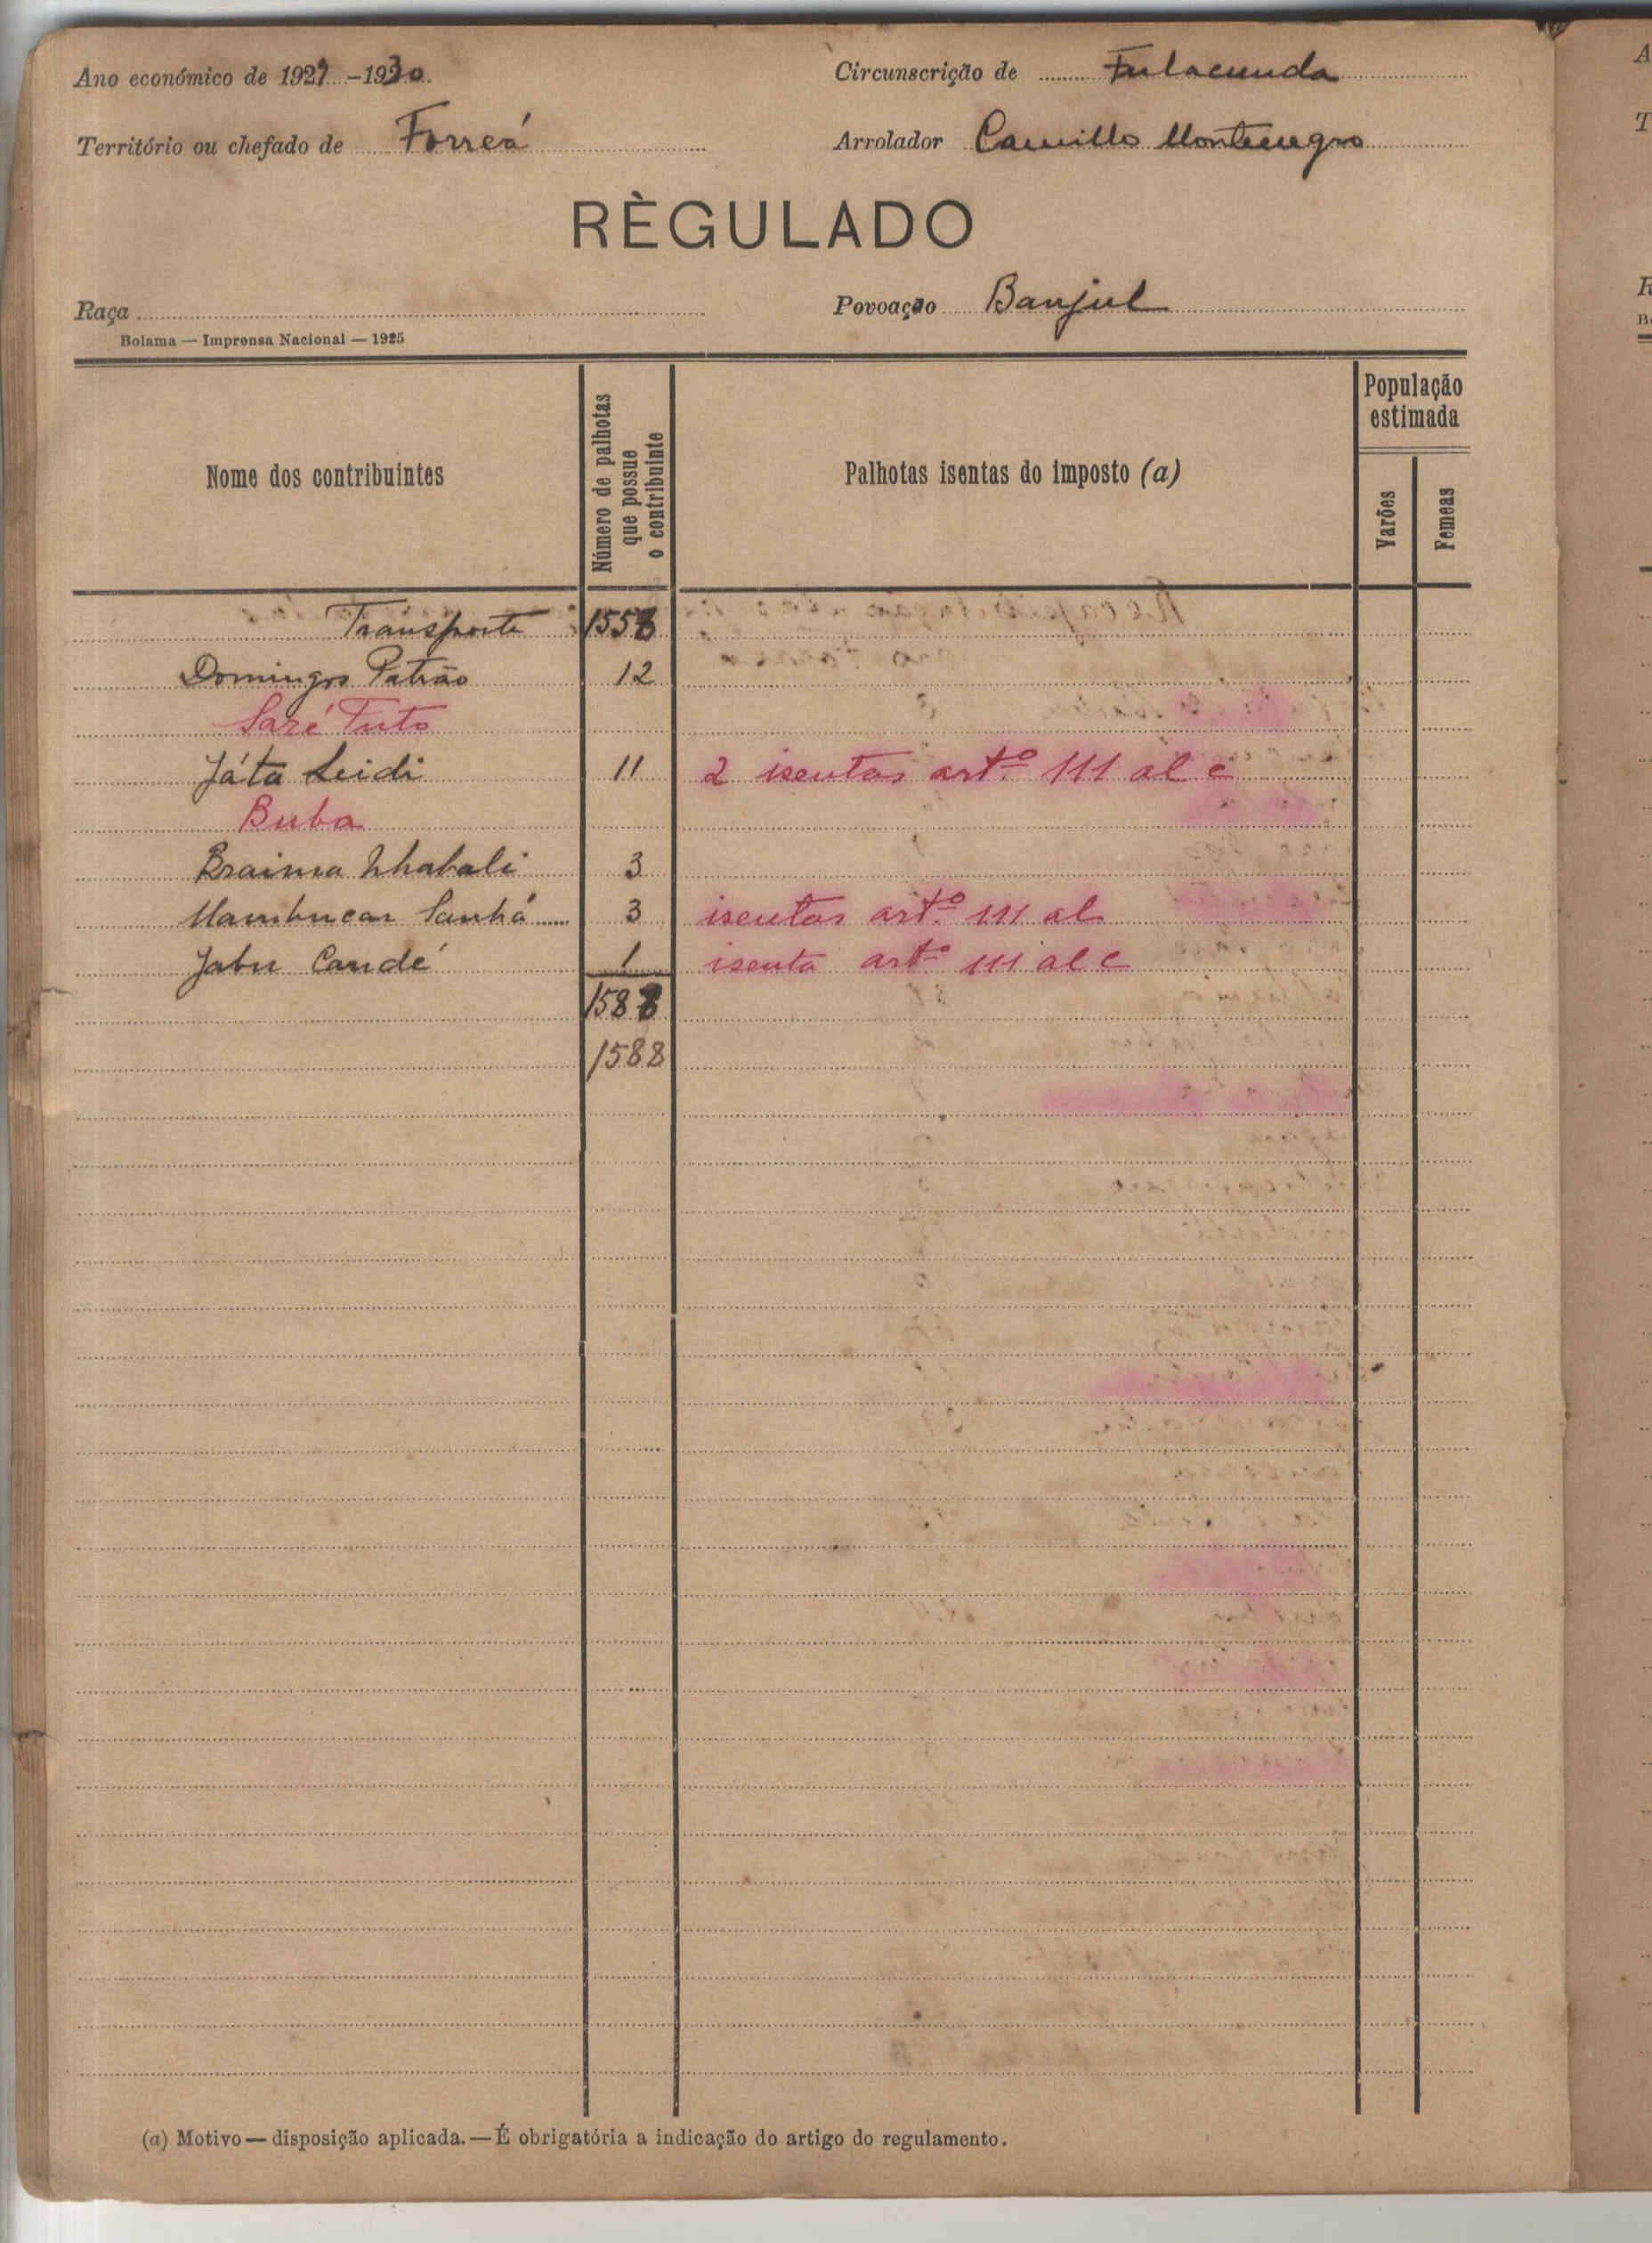 Ano económico de 1929-1930
Circunscrição de Fulacunda
Território ou chefado de Forreá
Arrolador Camillo Montenegro
RÈGULADO
Raça
Povoação Banjul
Bolama — Imprensa Nacional — 1925
Nome dos contribuintes
Número de palhotas que possue o contribuinte
Palhotas isentas do imposto (a)
População estimada
Varões
Femeas
Transporte 1558
Domingos Patrão 12
Saré Tuto
Játa Seidi 11 2 isentas artº 111 al c
Buba
Braima Nhabali 3
Mambucar Sanhá 3 isentas artº 111 al
Jabu Candé 1 isenta artº 111 al c
1588
1588
(a) Motivo — disposição aplicada. — É obrigatória a indicação do artigo do regulamento.